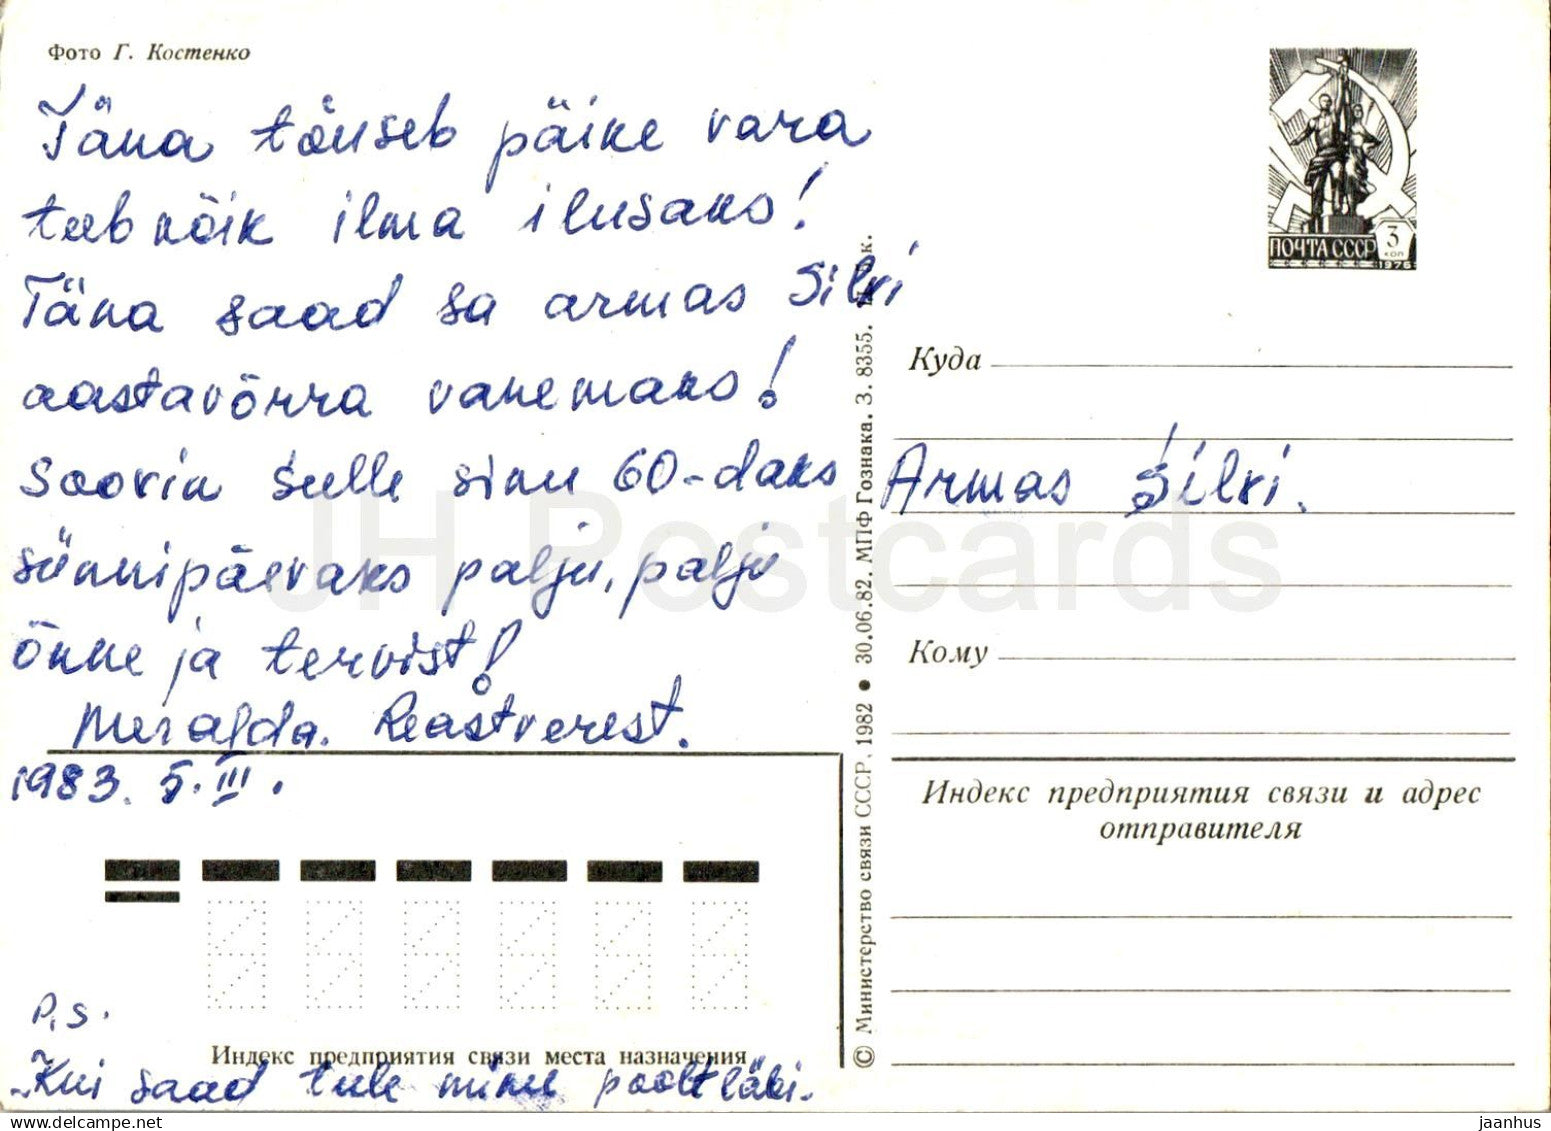 Фото Г. Костенко
Täna tõuseb päike vara
teeb kõik ilma ilusaks!
Täna saad sa armas Silvi
aastavõrra vanemaks!
Soovin sulle sinu 60-daks
sünnipäevaks palju, palju
õnne ja tervist!
Meralda. Reastverest.
1983. 5. III.
P.S.
Kui saad tule minu poolt läbi.
Индекс предприятия связи места назначения
© Министерство связи СССР, 1982 • 30.06.82. МПФ Гознака. З. 8355. к.
ПОЧТА СССР
3
КОП
1976
Куда
Armas Silvi.
Кому
Индекс предприятия связи и адрес
отправителя
JH Postcards
jaanhus